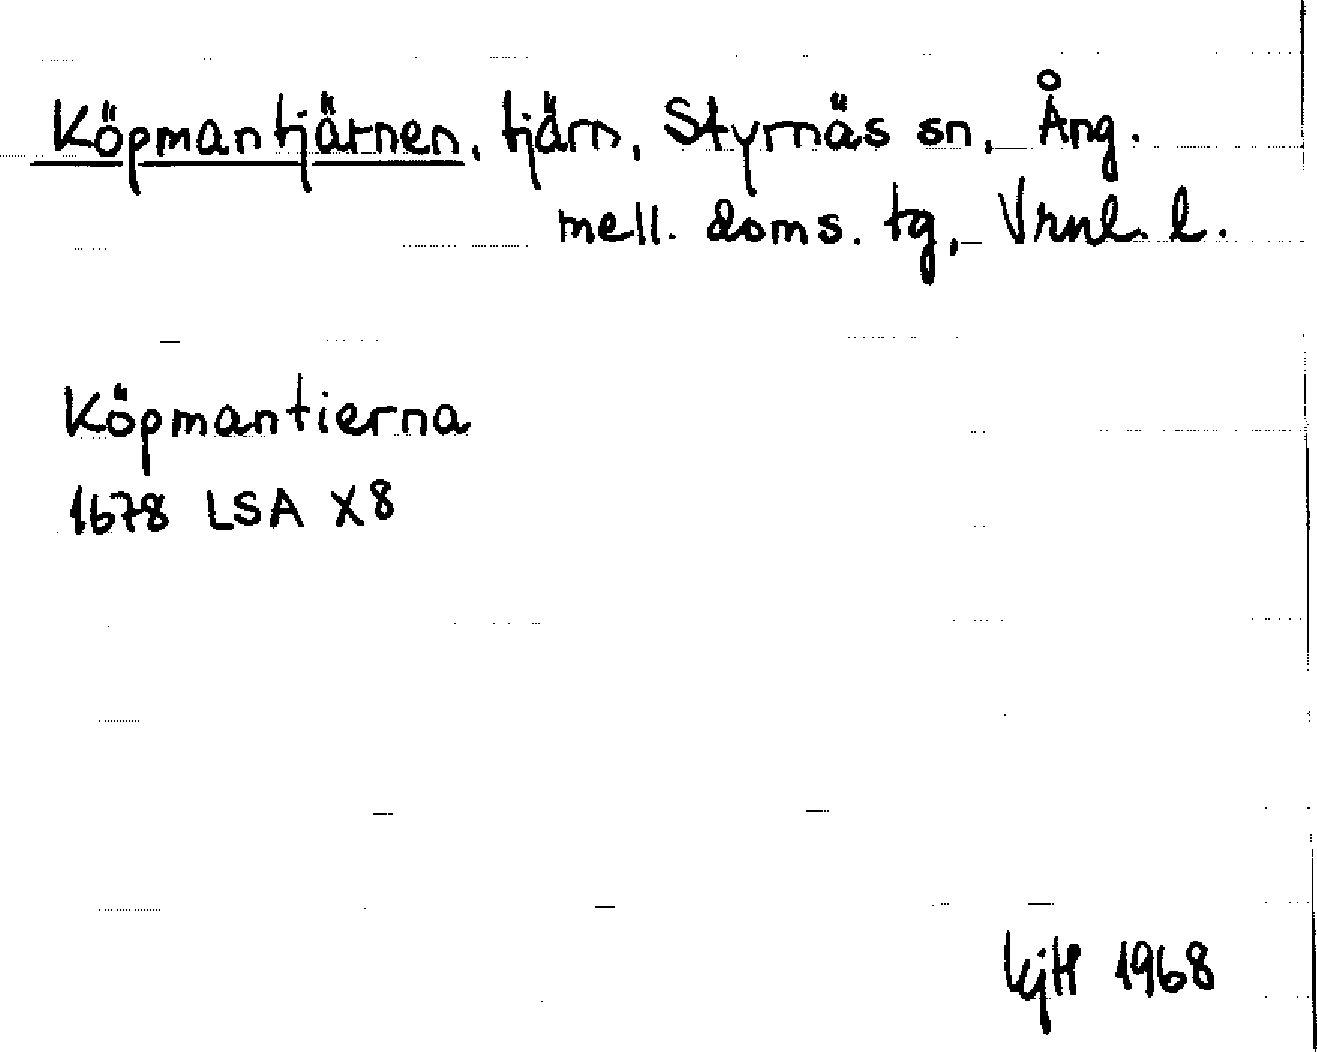 Köpmantjärnen, tjärn, Styrnäs sn, Ång.
mell. doms. tg, Vrnl. l.
Köpmantierna
1678 LSA X8
KjH 1968